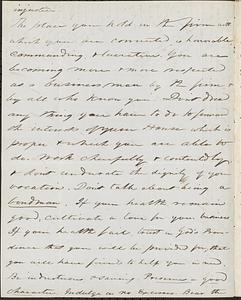 injustice
The place you hold in the firm with
which you are connected is honorable
commanding & lucrative. You are
becoming more & more respected
as a business man by the firm &
by all who know you. Dont dread
any thing you have to do to forward
the interests of your House which is
proper & which you are able to
do. Work cheerfully & contentedly
& dont undervalue the dignity of your
vocation. Dont talk about being a
Bondman. If your health remain
good, cultivate a love for your business
If your health fail trust in God's Prov-
idence that you will be provided for, that
you will have friends to help you in need
Be industrious & saving Preserve a good
character Indulge in no Excesses Bear the